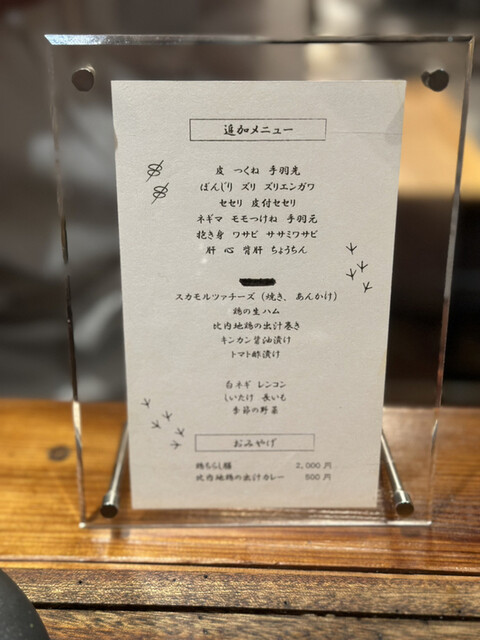 追加メニュー
皮 つくね 手羽先
ぼんじり ズリ ズリエンガワ
セセリ 皮付セセリ
ネギマ モモつけね 手羽元
抱き身 ワサビ ササミワサビ
肝 心 背肝 ちょうちん
スカモルツァチーズ(焼き、あんかけ)
鶏の生ハム
比内地鶏の出汁巻き
キンカン醤油漬け
トマト酢漬け
白ネギ レンコン
しいたけ 長いも
季節の野菜
おみやげ
鶏ちらし膳 2,000円
比内地鶏の出汁カレー 500円